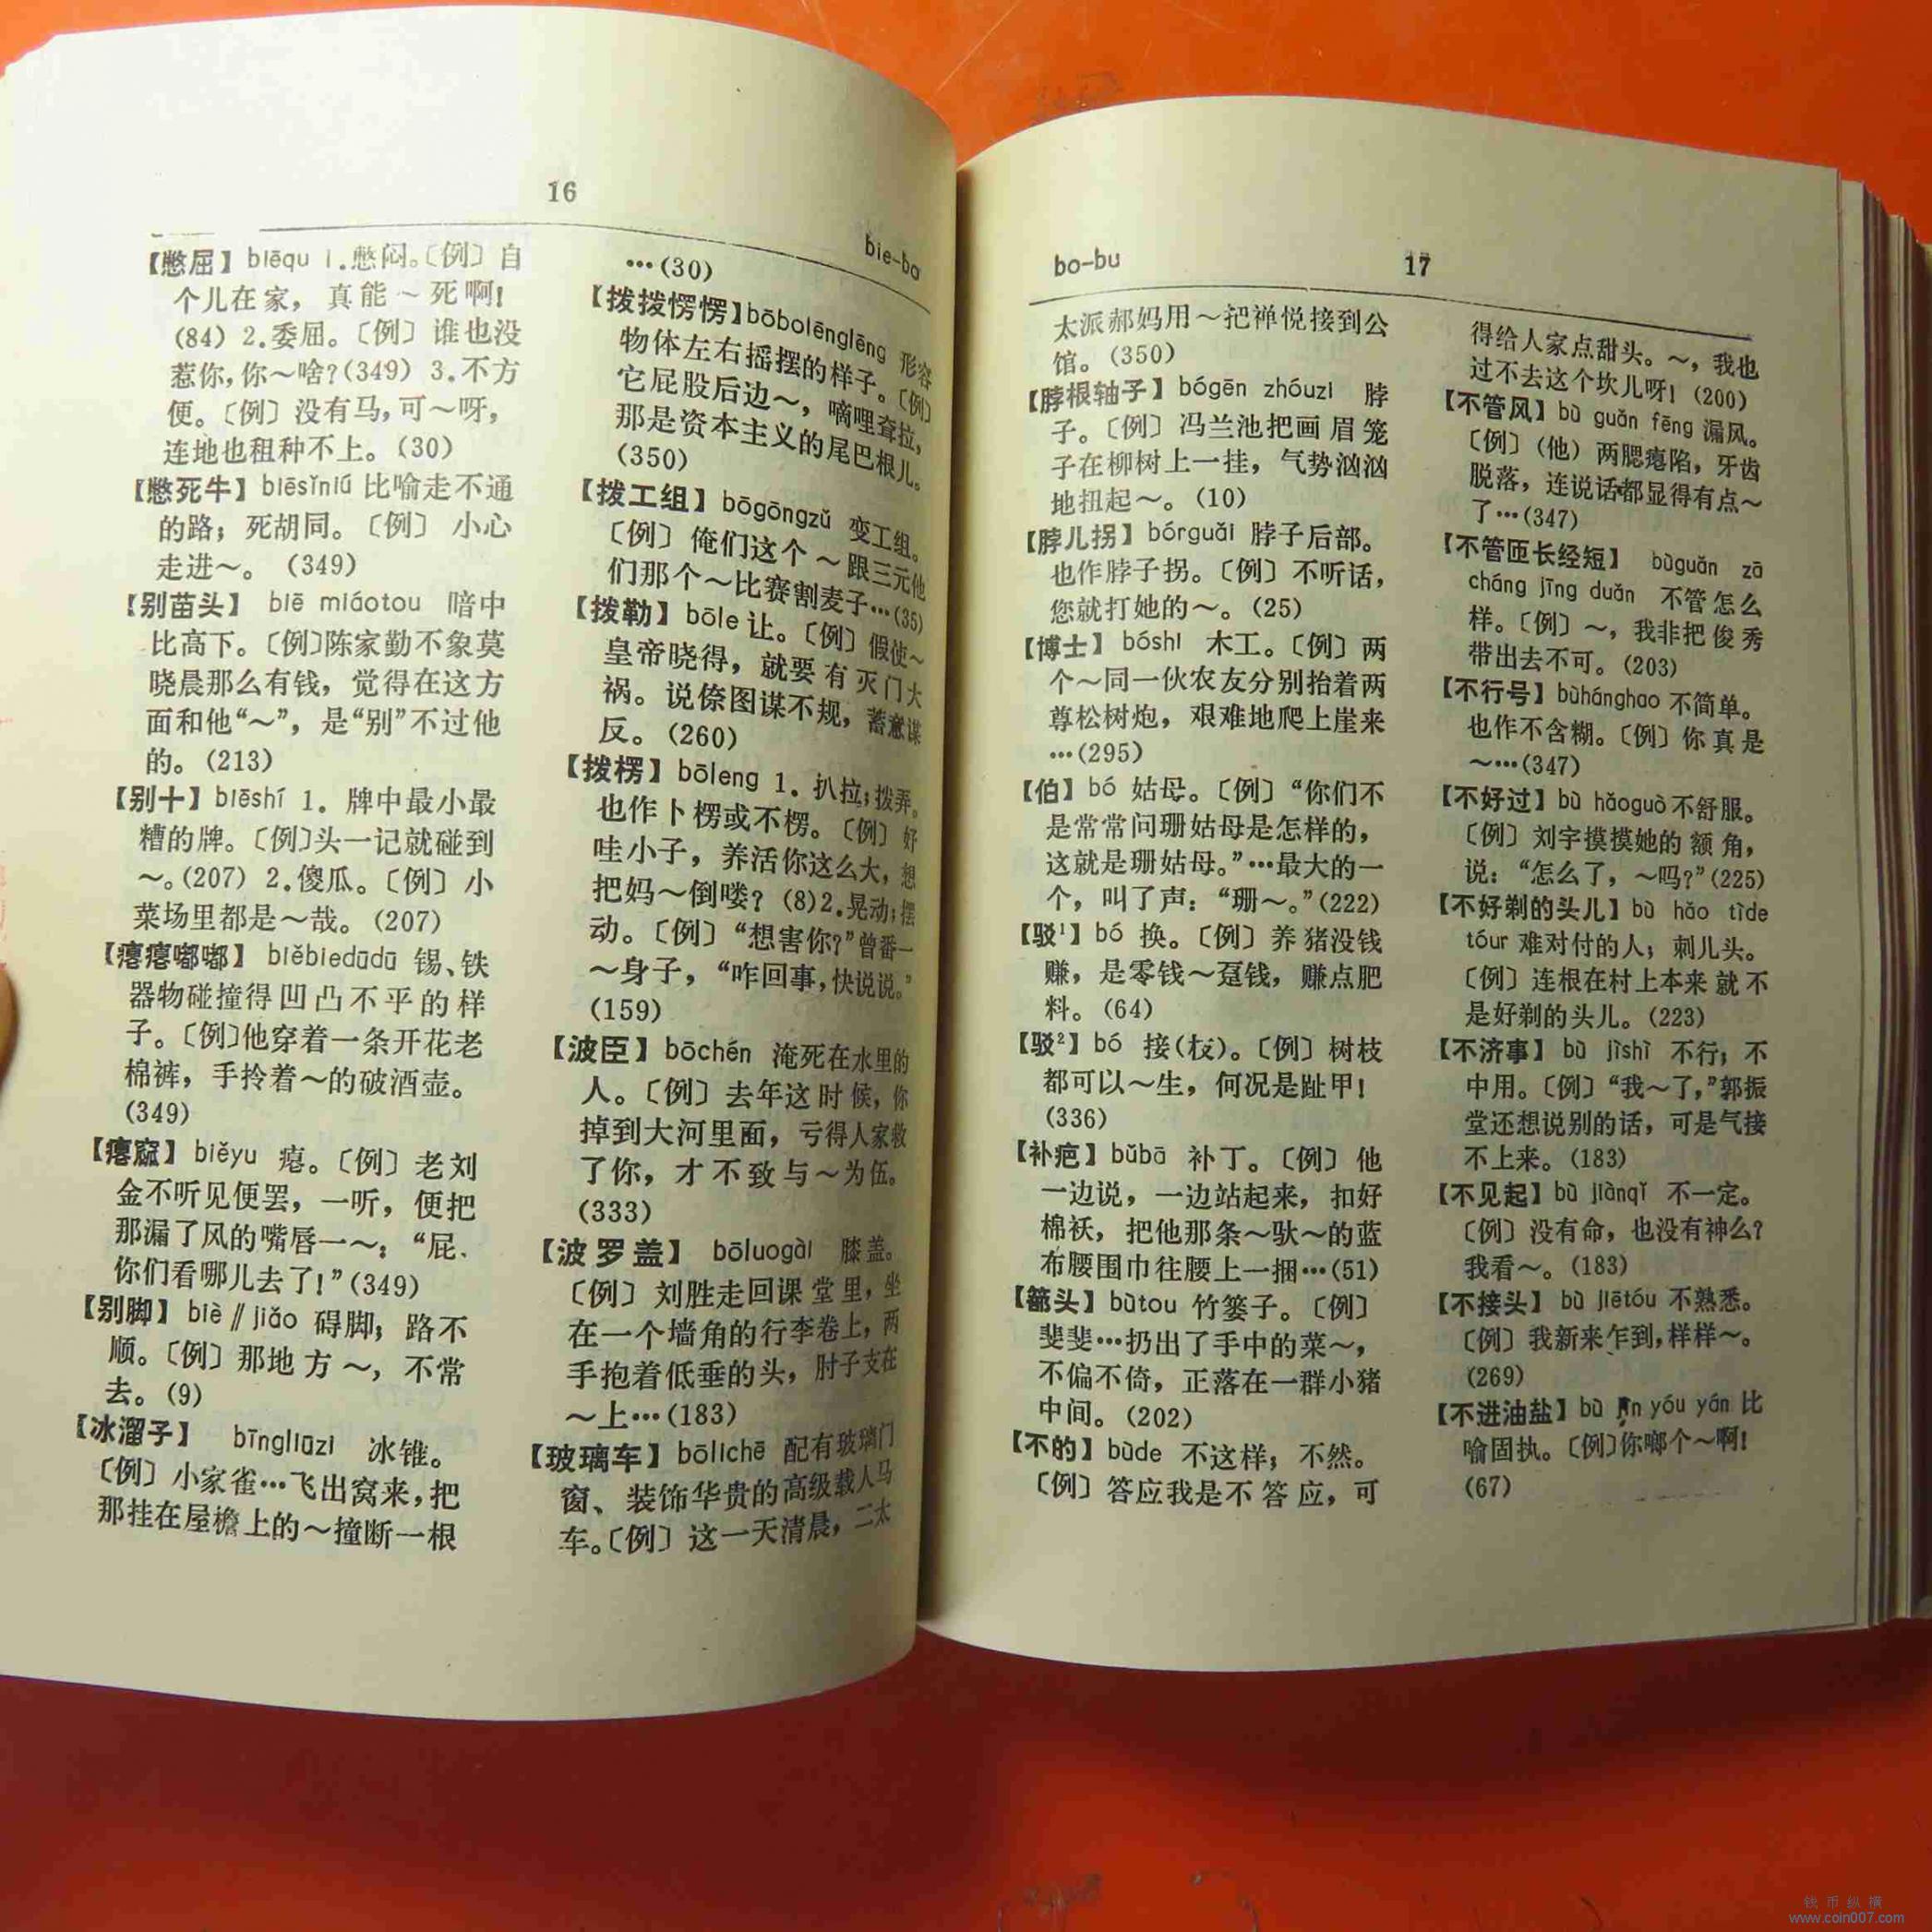 16
bie-bo
【憋屈】biēqu 1.憋闷。〔例〕自
个儿在家，真能～死啊！
(84) 2.委屈。〔例〕谁也没
惹你，你～啥？(349) 3.不方
便。〔例〕没有马，可～呀，
连地也租种不上。(30)
【憋死牛】biēsǐniú 比喻走不通
的路；死胡同。〔例〕小心
走进～。(349)
【别苗头】biē miáotou 暗中
比高下。〔例〕陈家勤不象莫
晓晨那么有钱，觉得在这方
面和他“～”，是“别”不过他
的。(213)
【别十】biēshí 1. 牌中最小最
糟的牌。〔例〕头一记就碰到
～。(207) 2.傻瓜。〔例〕小
菜场里都是～哉。(207)
【瘪瘪嘟嘟】biěbiedūdū 锡、铁
器物碰撞得凹凸不平的样
子。〔例〕他穿着一条开花老
棉裤，手拎着～的破酒壶。
(349)
【瘪窳】biěyu 瘪。〔例〕老刘
金不听见便罢，一听，便把
那漏了风的嘴唇一～：“屁，
你们看哪儿去了！”(349)
【别脚】biè∥jiǎo 碍脚；路不
顺。〔例〕那地方～，不常
去。(9)
【冰溜子】bīngliūzi 冰锥。
〔例〕小家雀…飞出窝来，把
那挂在屋檐上的～撞断一根
…(30)
【拨拨愣愣】bōbolēnglēng 形容
物体左右摇摆的样子。〔例〕
它屁股后边～，嘀哩耷拉，
那是资本主义的尾巴根儿。
(350)
【拨工组】bōgōngzǔ 变工组。
〔例〕俺们这个～跟三元他
们那个～比赛割麦子…(35)
【拨勒】bōle 让。〔例〕假使～
皇帝晓得，就要有灭门大
祸。说倷图谋不规，蓄意谋
反。(260)
【拨楞】bōleng 1. 扒拉；拨弄。
也作卜楞或不楞。〔例〕好
哇小子，养活你这么大，想
把妈～倒喽？(8)2.晃动；摆
动。〔例〕“想害你？”曾番一
～身子，“咋回事，快说说。”
(159)
【波臣】bōchén 淹死在水里的
人。〔例〕去年这时候，你
掉到大河里面，亏得人家救
了你，才不致与～为伍。
(333)
【波罗盖】bōluogài 膝盖。
〔例〕刘胜走回课堂里，坐
在一个墙角的行李卷上，两
手抱着低垂的头，肘子支在
～上…(183)
【玻璃车】bōlichē 配有玻璃门
窗、装饰华贵的高级载人马
车。〔例〕这一天清晨，二太
bo-bu
17
太派郝妈用～把禅悦接到公
馆。(350)
【脖根轴子】bógēn zhóuzi 脖
子。〔例〕冯兰池把画眉笼
子在柳树上一挂，气势汹汹
地扭起～。(10)
【脖儿拐】bórguǎi 脖子后部。
也作脖子拐。〔例〕不听话，
您就打她的～。(25)
【博士】bóshi 木工。〔例〕两
个～同一伙农友分别抬着两
尊松树炮，艰难地爬上崖来
…(295)
【伯】bó 姑母。〔例〕“你们不
是常常问珊姑母是怎样的，
这就是珊姑母。”…最大的一
个，叫了声：“珊～。”(222)
【驳¹】bó 换。〔例〕养猪没钱
赚，是零钱～趸钱，赚点肥
料。(64)
【驳²】bó 接(枝)。〔例〕树枝
都可以～生，何况是趾甲！
(336)
【补疤】bǔbā 补丁。〔例〕他
一边说，一边站起来，扣好
棉袄，把他那条～驮～的蓝
布腰围巾往腰上一捆…(51)
【篰头】bùtou 竹篓子。〔例〕
斐斐…扔出了手中的菜～，
不偏不倚，正落在一群小猪
中间。(202)
【不的】bùde 不这样；不然。
〔例〕答应我是不答应，可
得给人家点甜头。～，我也
过不去这个坎儿呀！(200)
【不管风】bù guǎn fēng 漏风。
〔例〕(他) 两腮瘪陷，牙齿
脱落，连说话都显得有点～
了…(347)
【不管匝长经短】bùguǎn zā
cháng jīng duǎn 不管怎么
样。〔例〕～，我非把俊秀
带出去不可。(203)
【不行号】bùhánghao 不简单。
也作不含糊。〔例〕你真是
～…(347)
【不好过】bù hǎoguò 不舒服。
〔例〕刘宇摸摸她的额角，
说：“怎么了，～吗？”(225)
【不好剃的头儿】bù hǎo tìde
tóur 难对付的人；刺儿头。
〔例〕连根在村上本来就不
是好剃的头儿。(223)
【不济事】bù jìshì 不行；不
中用。〔例〕“我～了，”郭振
堂还想说别的话，可是气接
不上来。(183)
【不见起】bù jiànqǐ 不一定。
〔例〕没有命，也没有神么？
我看～。(183)
【不接头】bù jiētóu 不熟悉。
〔例〕我新来乍到，样样～。
(269)
【不进油盐】bù jìn yóu yán 比
喻固执。〔例〕你啷个～啊！
(67)
钱币纵横
www.coin007.com